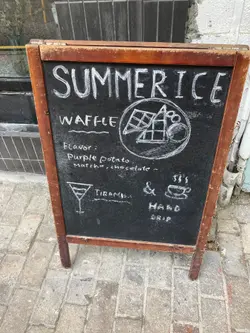 SUMMER ICE
WAFFLE
Flavor:
Purple potato,
Matcha, chocolate~
TIRAMI
&
HAND
DRIP